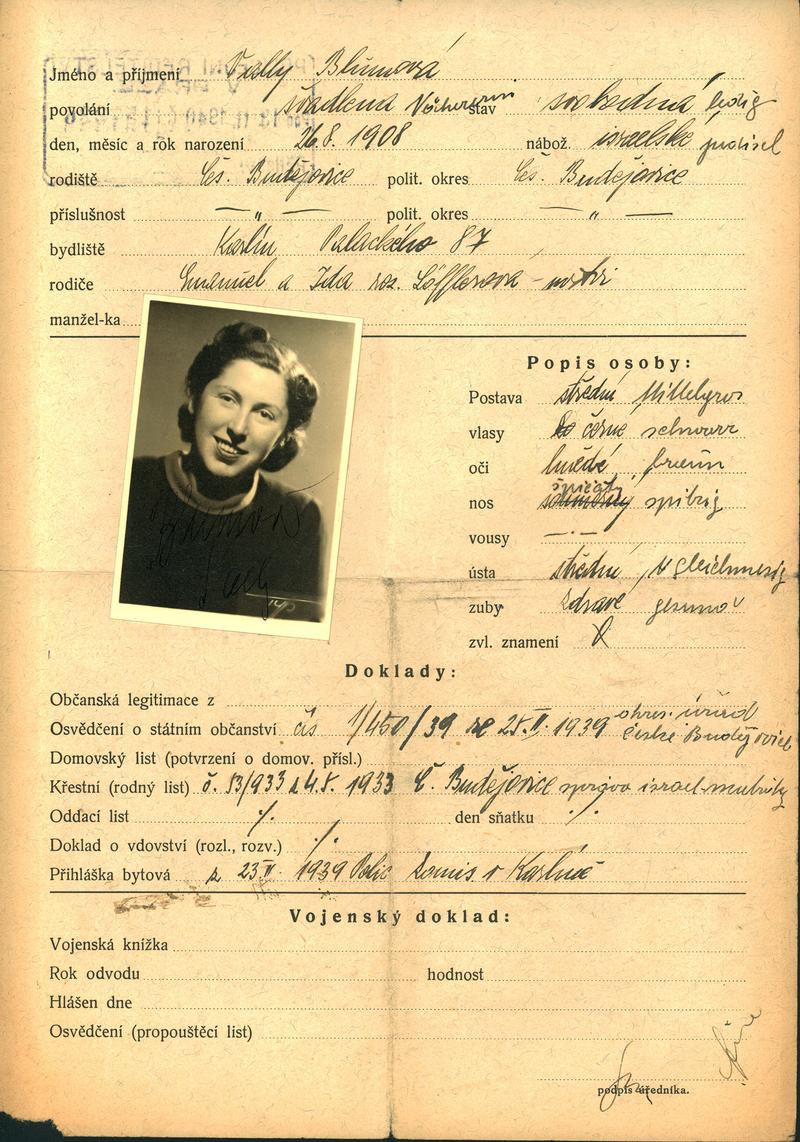 Jméno a příjmení Vally Blumová
povolání švadlena stav svobodná ledig
den, měsíc a rok narození 26.8. 1908 nábož. israelské
rodiště Čes. Budějovice polit. okres Čes. Budějovice
příslušnost — „ — polit. okres — „ —
bydliště Karlín Palackého 87
rodiče Emanuel a Ida roz. Löfflerová - mrtvi
manžel-ka
Popis osoby:
Postava střední
vlasy černé schwarz
oči hnědé braun
nos špičatý spitzig
vousy — · —
ústa střední
zuby zdravé gesund
zvl. znamení
Doklady:
Občanská legitimace z
Osvědčení o státním občanství čís 1/450/39 ze 25.II. 1939 okres. úřad
České Budějovice
Domovský list (potvrzení o domov. přísl.)
Křestní (rodný list) č. 83/933 z 4.8. 1933 Č. Budějovice správa israel. matriky
Oddací list ·/. den sňatku ·/·
Doklad o vdovství (rozl., rozv.) ·/·
Přihláška bytová z 23.II. 1939 Polic Komis v Karlíně
Vojenský doklad:
Vojenská knížka
Rok odvodu hodnost
Hlášen dne
Osvědčení (propouštěcí list)
podpis úředníka.